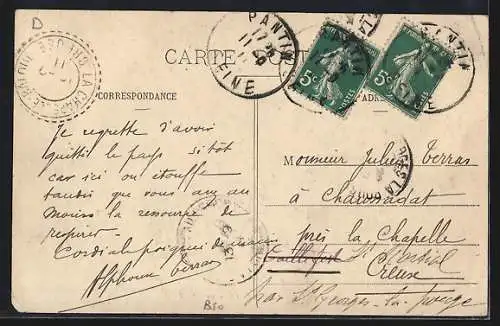 D
CARTE POSTALE
PANTIN
SEINE
5c
5c
POSTES
CORRESPONDANCE
Je regrette d'avoir
quitté le pays si tôt
car ici on étouffe
tandis que vous avez au
Moins la ressource de
respirer
Cordiale poignée de mains
Alphonse Terras
Monsieur Julien Terras
à
près la Chapelle
St Martial
Creuse
par St Georges la pouge
B50